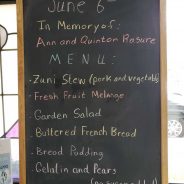 June 6
In Memory of:
Ann and Quinton Rasure
MENU:
- Zuni Stew (pork and vegetable)
- Fresh Fruit Melange
- Garden Salad
- Buttered French Bread
- Bread Pudding
- Gelatin and Pears